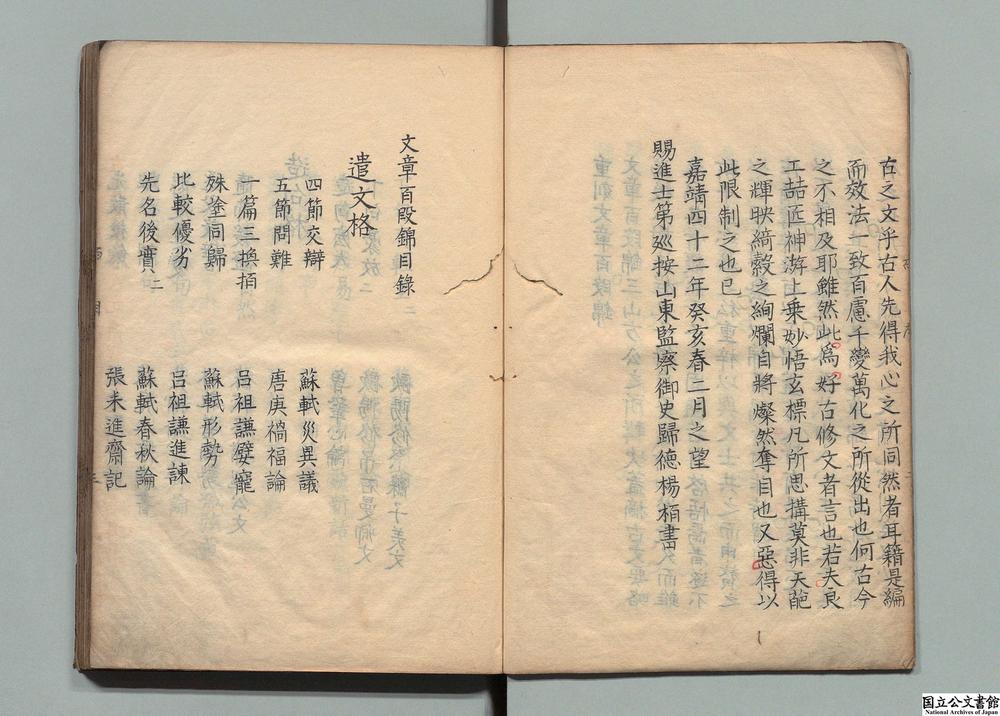 古之文乎古人先得我心之所同然者耳籍是編
而效法一致百慮千變萬化之所從出也何古今
之不相及耶雖然此爲好古修文者言也若夫良
工喆匠神游上乘妙悟玄標凡所思搆莫非天葩
之輝映綺縠之絢爛自將燦然奪目也又惡得以
此限制之也已
嘉靖四十二年癸亥春二月之望
賜進士第廵按山東監察御史歸德楊栢書
文章百段錦目錄
遣文格
四節交辯 蘇軾災異議
五節問難 唐庚禍福論
一篇三換拍 呂祖謙嬖寵
殊塗同歸 蘇軾形勢
比較優劣 呂祖謙進諫
先名後實二 蘇軾春秋論
張耒進齋記
国立公文書館
National Archives of Japan